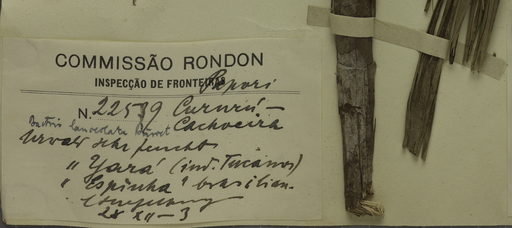 COMMISSÃO RONDON
INSPECÇÃO DE FRONTEIRAS
Papori
N. 22579 Cururú-
Bactris lanceolata Burret Cachoeira
Urwald sehr feucht
" Yará" (ind. Tucanos)
" Espinha" brasilian.
28 XII-3